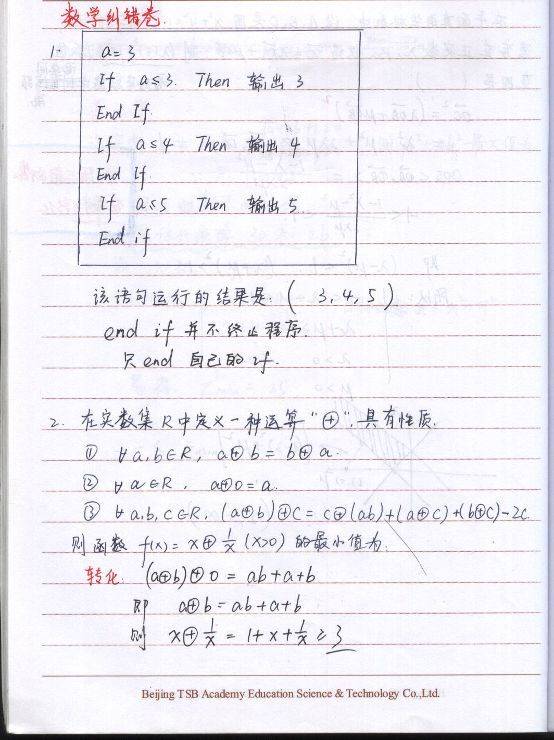 数学纠错卷.
1. a=3
If a≤3. Then 输出 3
End If.
If a≤4 Then 输出 4
End If
If a≤5 Then 输出 5.
End if
该语句运行的结果是: ( 3, 4, 5 )
end if 并不终止程序.
只 end 自己的 if.
2. 在实数集 R 中定义一种运算 "⊕", 具有性质.
① ∀a,b∈R, a⊕b = b⊕a.
② ∀a∈R, a⊕0=a.
③ ∀a,b,c∈R, (a⊕b)⊕c = c⊕(ab)+(a⊕c)+(b⊕c)-2c
则函数 f(x)= x⊕1/x (x>0) 的最小值为.
转化. (a⊕b)⊕0 = ab+a+b
即 a⊕b=ab+a+b
则 x⊕1/x = 1+x+1/x ≥3
Beijing TSB Academy Education Science & Technology Co.,Ltd.